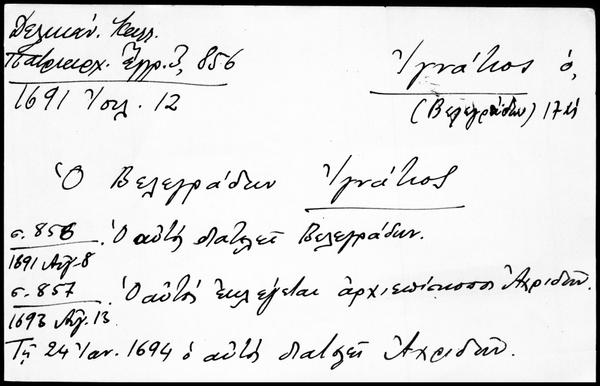 Δελικάν. Καλλ.
Πατριαρχ. Ἔγγρ. 3, 856
1691 Ἰουλ. 12
Ἰγνάτιος ὁ,
(Βελεγράδων) 17
Ὁ Βελεγράδων Ἰγνάτιος
σ. 856
1691 Αὐγ. 8
Ὁ αὐτός διατελεῖ Βελεγράδων.
σ. 857
1693 Αὐγ. 13
Ὁ αὐτός ἐκλέγεται ἀρχιεπίσκοπος Ἀχριδῶν.
Τῇ 24 Ἰαν. 1694 ὁ αὐτός διατελεῖ Ἀχριδῶν.